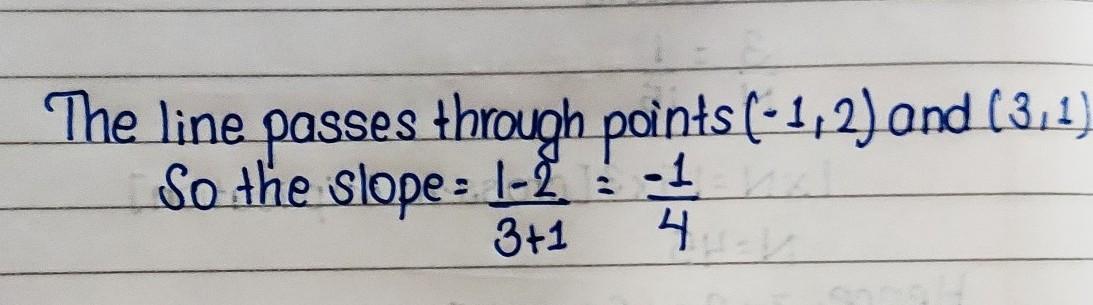 The line passes through points (-1,2) and (3,1)
So the slope = 1-2/3+1 = -1/4